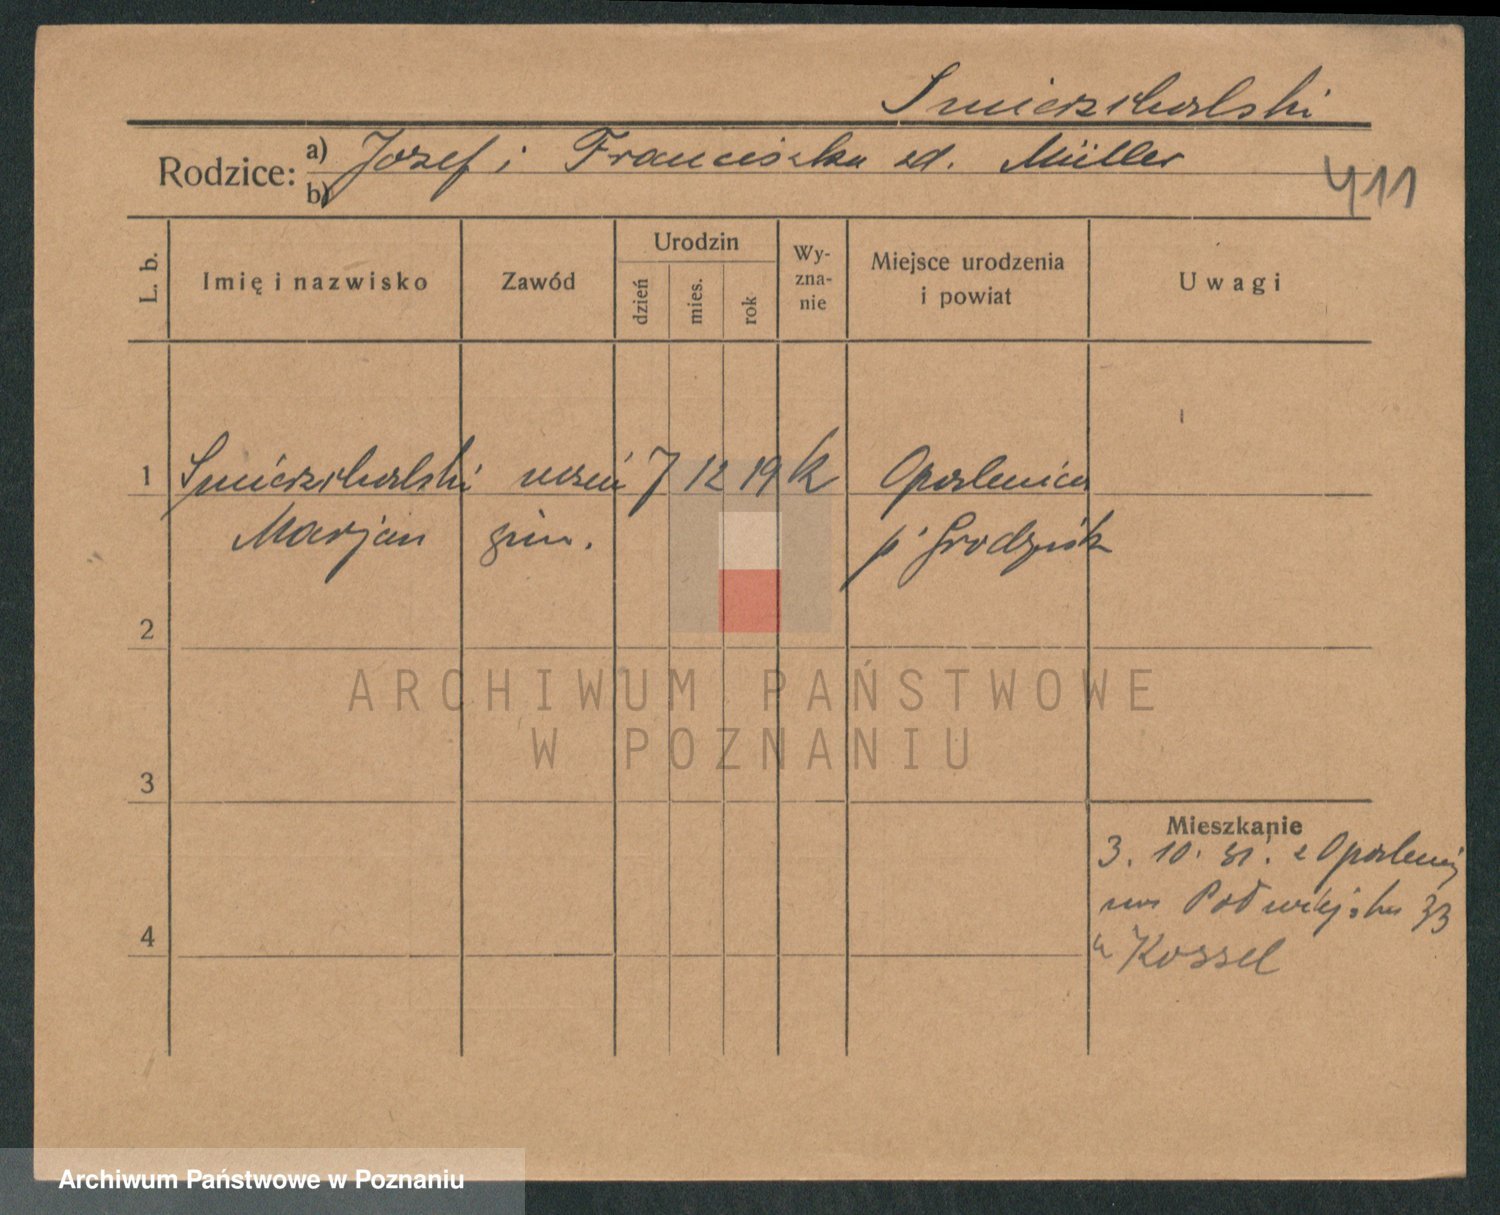 Smierzchalski
Rodzice: a) Józef i Franciszka zd. Müller
b)
411
L. b.
Imię i nazwisko
Zawód
Urodzin
dzień
mies.
rok
Wy-
zna-
nie
Miejsce urodzenia
i powiat
Uwagi
1 Smierzchalski uczeń 7 12 19 k Opalenica
Marjan gim. p. Grodzisk
2
3
4
Mieszkanie
3. 10. 31. z Opalenicy
na Półwiejska 33
u Kossel
ARCHIWUM PAŃSTWOWE
W POZNANIU
Archiwum Państwowe w Poznaniu